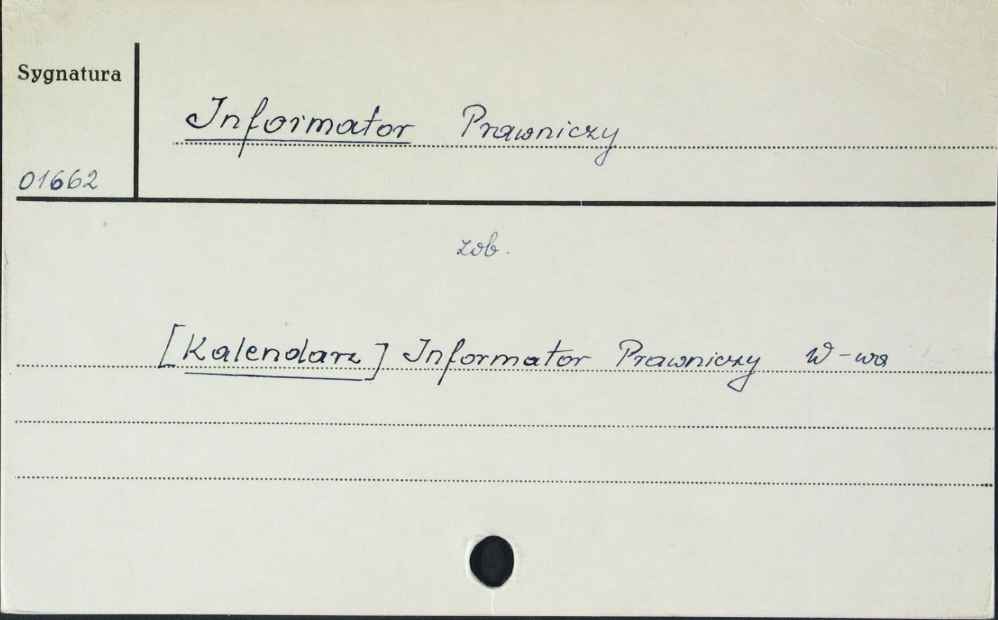 Sygnatura
Informator Prawniczy
01662
zob.
[Kalendarz] Informator Prawniczy W-wa